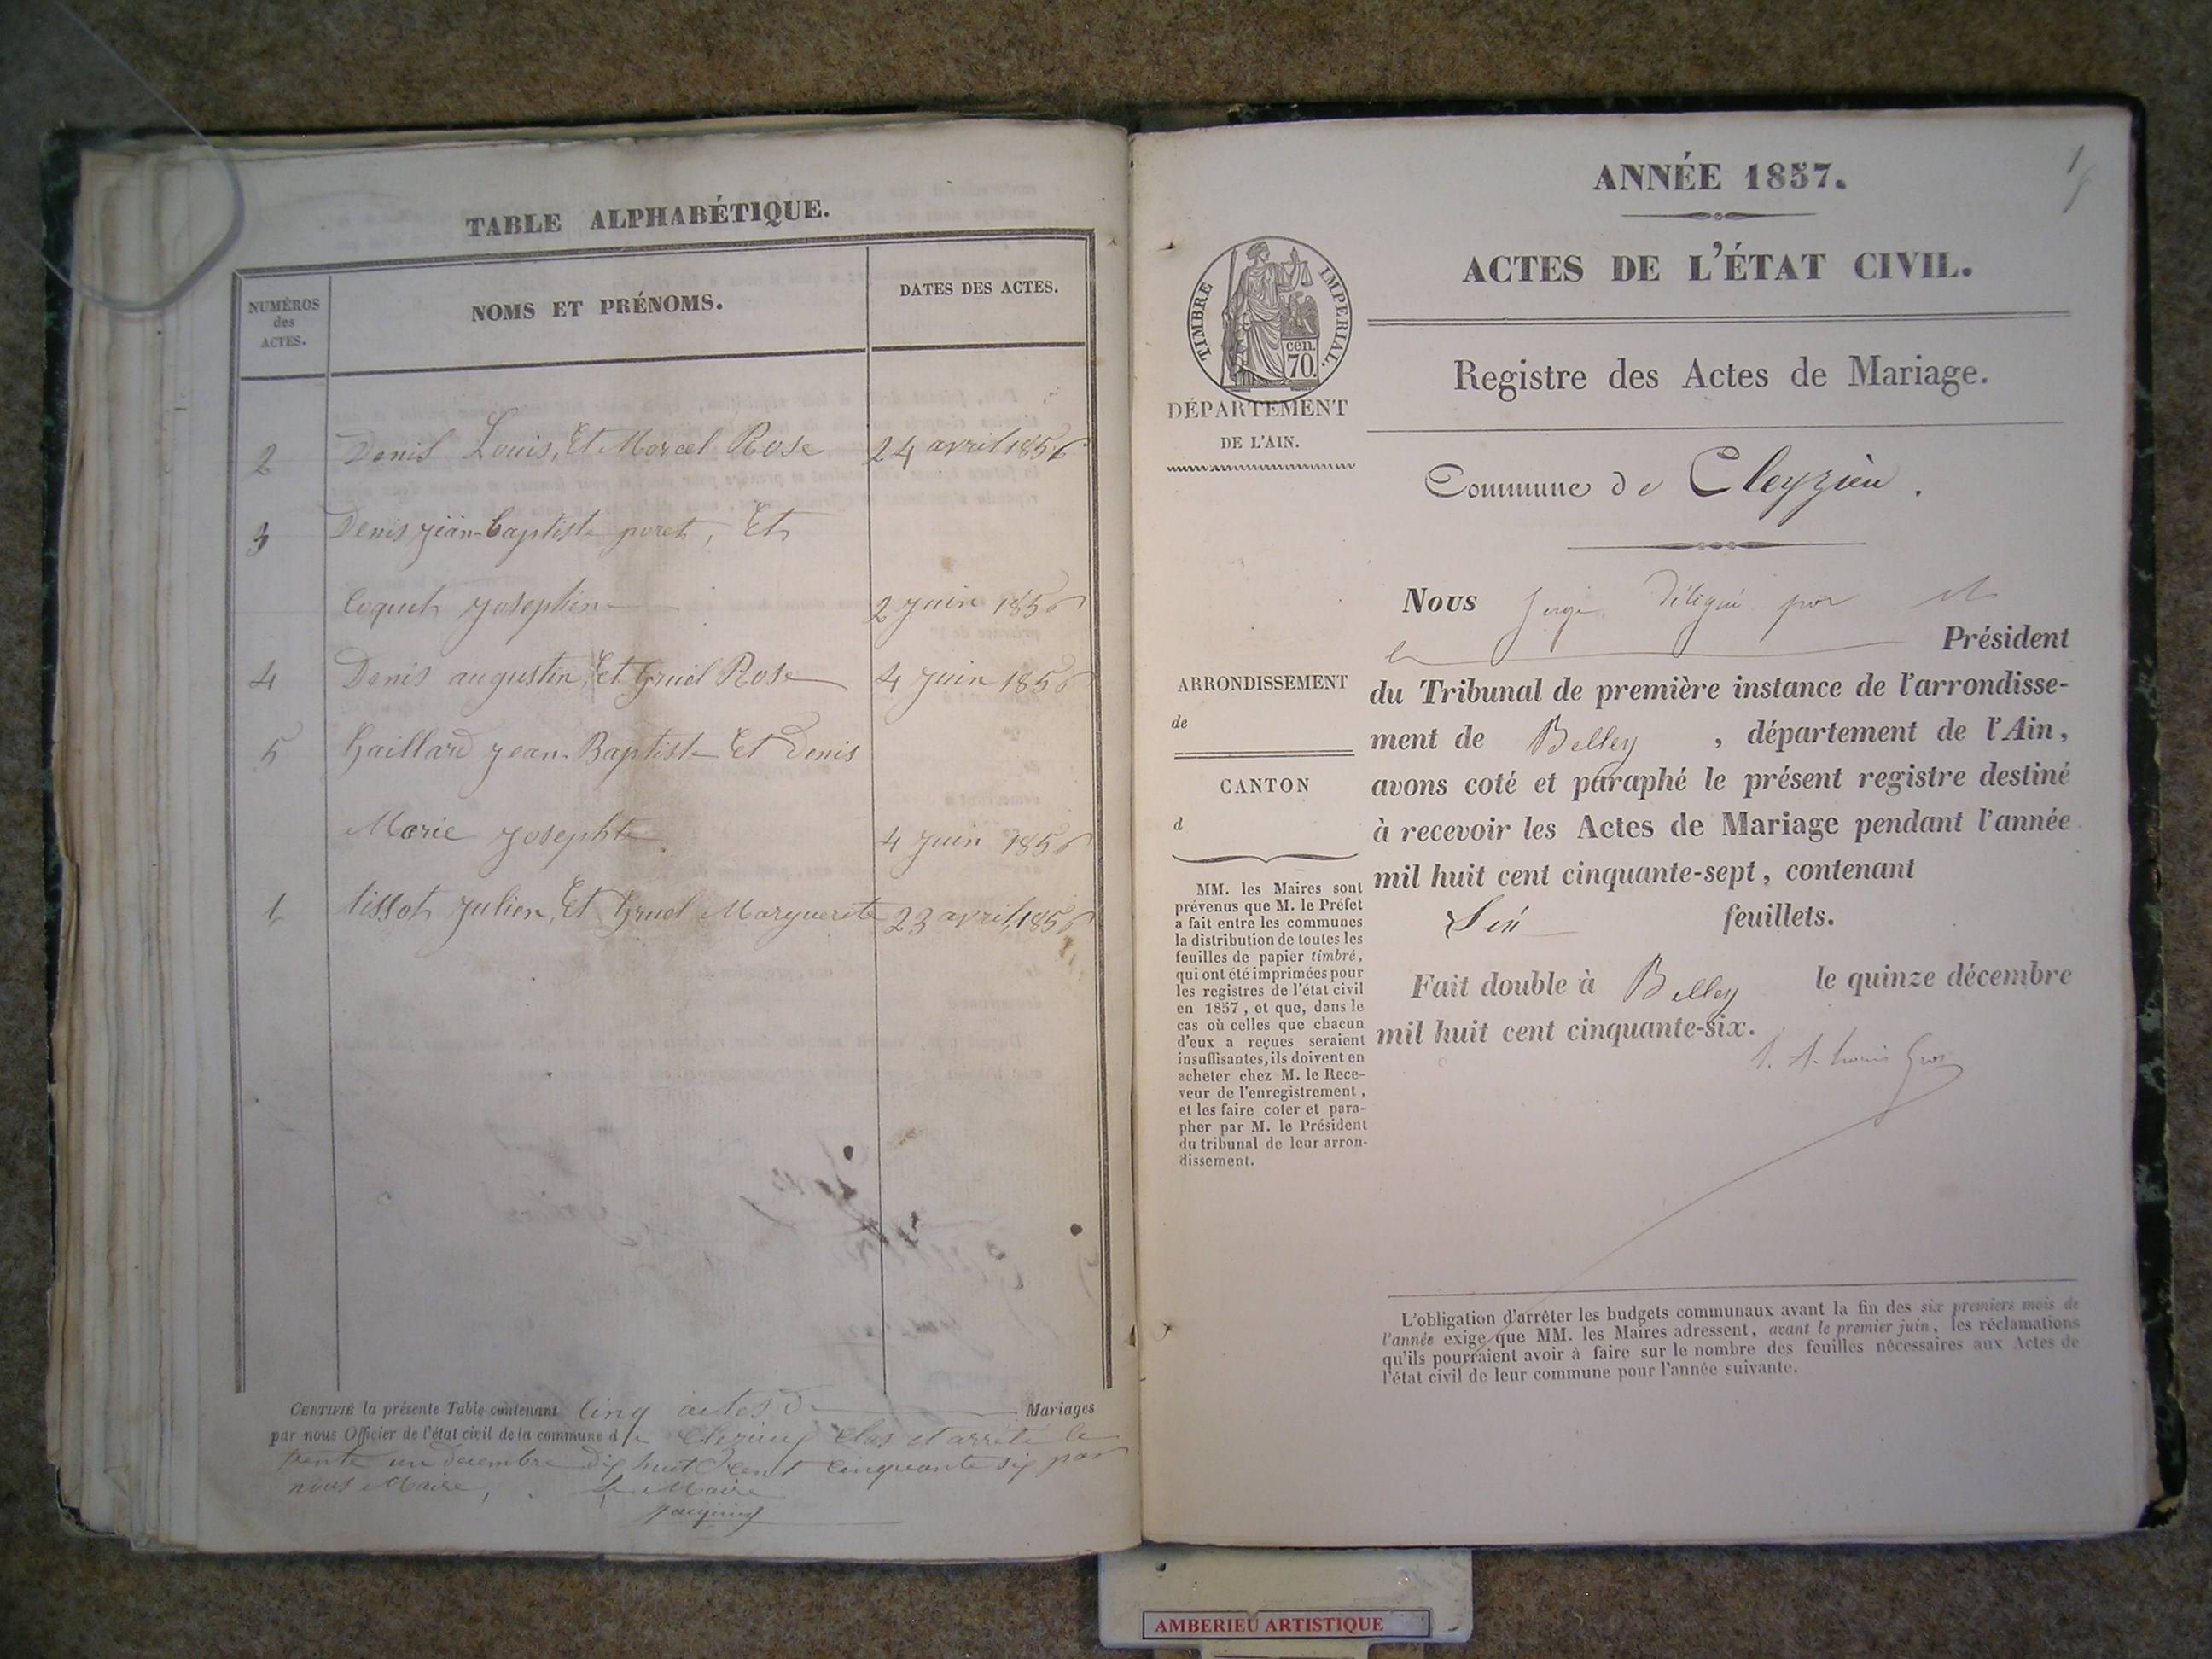 TABLE ALPHABÉTIQUE.
NUMÉROS
des
ACTES.
NOMS ET PRÉNOMS.
DATES DES ACTES.
2 Denis Louis, Et Morcel Rose 24 avril 1856
3 Denis jean-baptiste poret, Et
Coquet josephine 2 juin 1856
4 Denis augustin, Et Gruel Rose 4 juin 1856
5 Gaillard jean-Baptiste Et Denis
Marie josephte 4 juin 1856
1 tissot julien, Et Gruel Marguerite 23 avril 1856
CERTIFIÉ la présente Table contenant cinq actes de Mariages
par nous Officier de l'état civil de la commune de Cleyzieu Clos et arrêté le
trente un decembre dix huit cent cinquante six par
nous Maire, Le Maire
ANNÉE 1857.
1
ACTES DE L'ÉTAT CIVIL.
TIMBRE IMPERIAL.
cen.
70.
DÉPARTEMENT
DE L'AIN.
Registre des Actes de Mariage.
Commune de Cleyzieu.
Nous juge délégué par
Président
du Tribunal de première instance de l'arrondisse-
ment de Belley, département de l'Ain,
avons coté et paraphé le présent registre destiné
à recevoir les Actes de Mariage pendant l'année
mil huit cent cinquante-sept, contenant
Six feuillets.
Fait double à Belley le quinze décembre
mil huit cent cinquante-six.
ARRONDISSEMENT
de
CANTON
d
MM. les Maires sont
prévenus que M. le Préfet
a fait entre les communes
la distribution de toutes les
feuilles de papier timbré,
qui ont été imprimées pour
les registres de l'état civil
en 1857, et que, dans le
cas où celles que chacun
d'eux a reçues seraient
insuffisantes, ils doivent en
acheter chez M. le Rece-
veur de l'enregistrement,
et les faire coter et para-
pher par M. le Président
du tribunal de leur arron-
dissement.
L'obligation d'arrêter les budgets communaux avant la fin des six premiers mois de
l'année exige que MM. les Maires adressent, avant le premier juin, les réclamations
qu'ils pourraient avoir à faire sur le nombre des feuilles nécessaires aux Actes de
l'état civil de leur commune pour l'année suivante.
AMBERIEU ARTISTIQUE